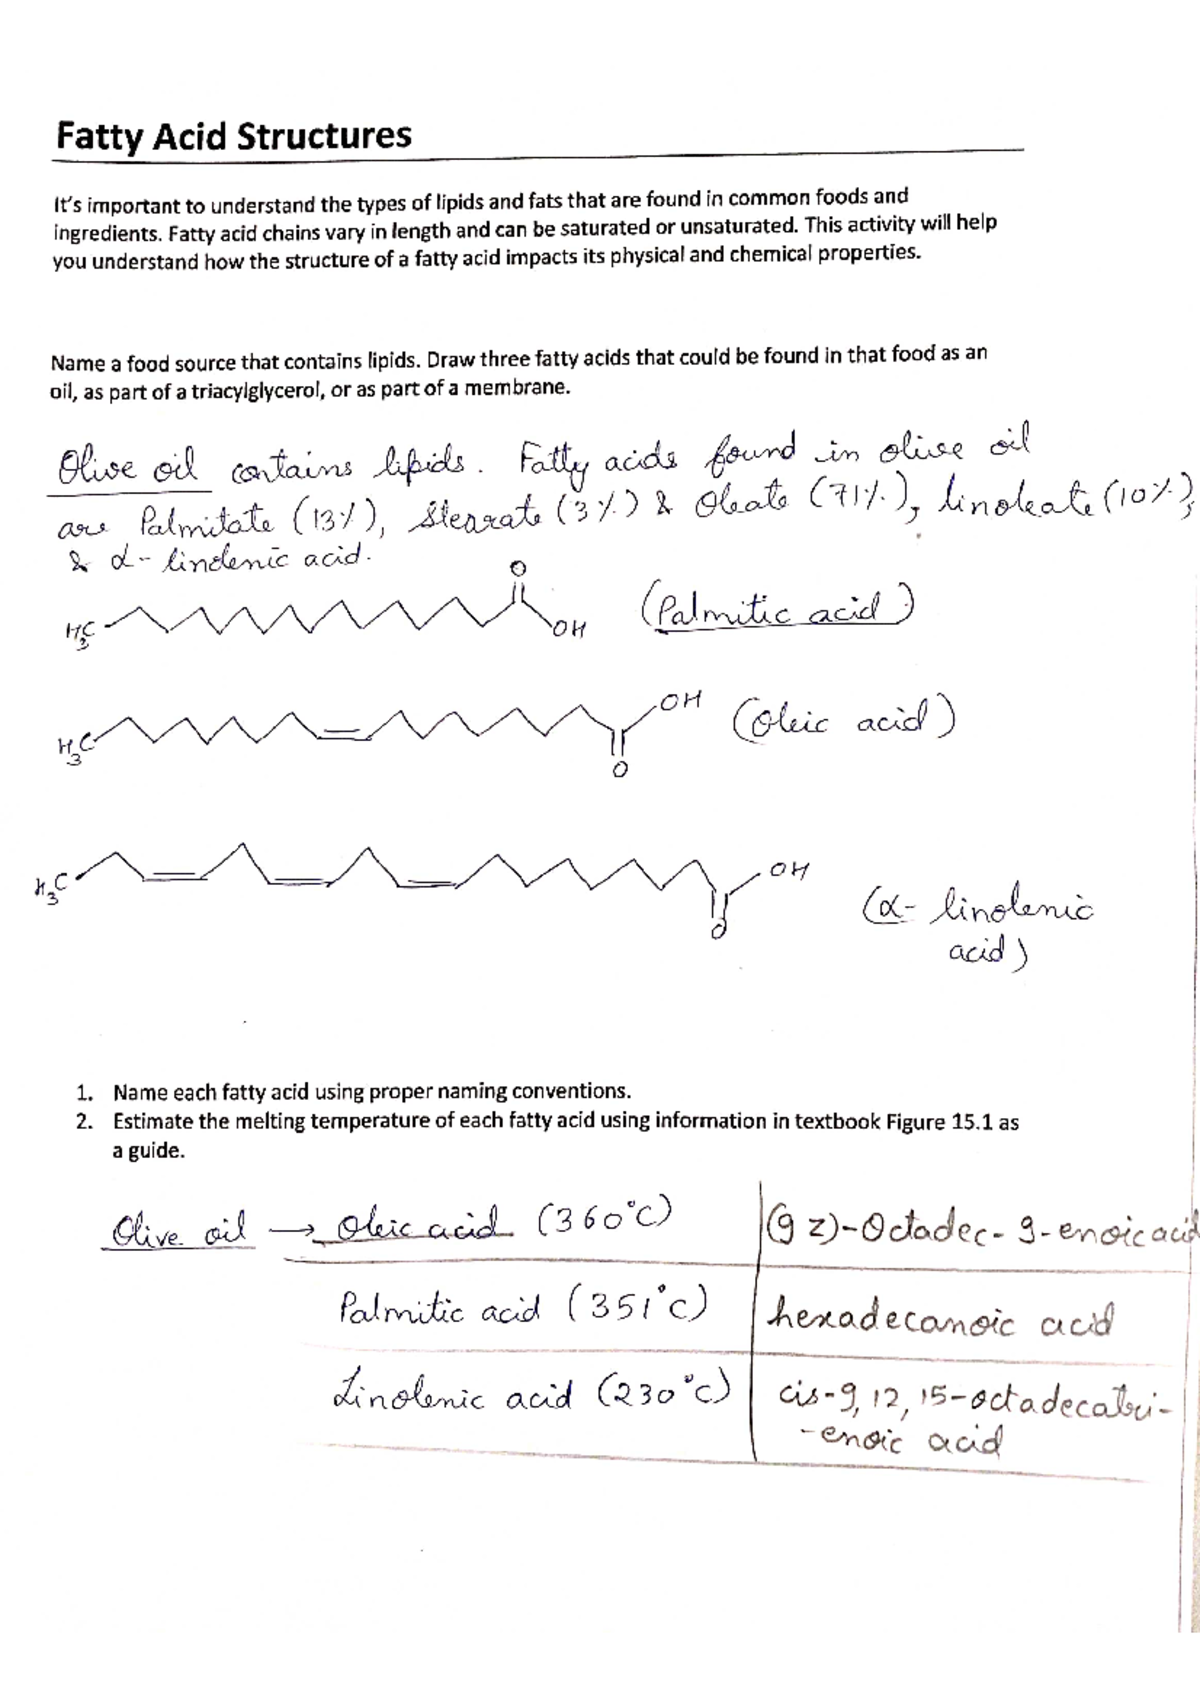 Fatty Acid Structures
It's important to understand the types of lipids and fats that are found in common foods and
ingredients. Fatty acid chains vary in length and can be saturated or unsaturated. This activity will help
you understand how the structure of a fatty acid impacts its physical and chemical properties.
Name a food source that contains lipids. Draw three fatty acids that could be found in that food as an
oil, as part of a triacylglycerol, or as part of a membrane.
Olive oil contains lipids. Fatty acids found in olive oil
are Palmitate (13%), Stearate (3%) & Oleate (71%), linoleate (10%),
& α-linolenic acid.
O
H3C OH (Palmitic acid)
H3C OH (Oleic acid)
O
H3C OH (α-linolenic
O acid)
1. Name each fatty acid using proper naming conventions.
2. Estimate the melting temperature of each fatty acid using information in textbook Figure 15.1 as
a guide.
Olive oil → Oleic acid (360°C) (9 Z)-Octadec-9-enoic acid
Palmitic acid (351°C) hexadecanoic acid
Linolenic acid (230°C) cis-9, 12, 15-octadecatri-
-enoic acid